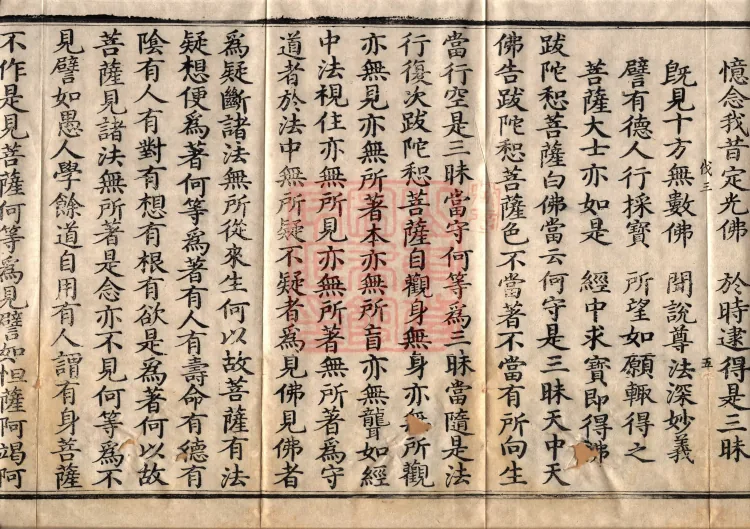 憶念我昔定光佛　於時逮得是三昧
既見十方無數佛　聞說尊法深妙義
伐三　五
譬有德人行採寶　所望如願輙得之
菩薩大士亦如是　經中求寶即得佛
跋陀惒菩薩白佛當云何守是三昧天中天
佛告跋陀惒菩薩色不當著不當有所向生
當行空是三昧當守何等為三昧當隨是法
行復次跋陀惒菩薩自觀身無身亦無所觀
亦無見亦無所著本亦無所盲亦無聾如經
中法視住亦無所見亦無所著無所著為守
道者於法中無所疑不疑者為見佛見佛者
為疑斷諸法無所從來生何以故菩薩有法
疑想便為著何等為著有人有壽命有德有
陰有人有對有想有根有欲是為著何以故
菩薩見諸法無所著是念亦不見何等為不
見譬如愚人學餘道自用有人謂有身菩薩
不作是見菩薩何等為見譬如怛薩阿竭阿